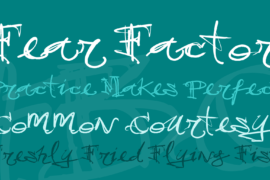 Fear Factor
Practice Makes Perfec
Common Courtesy
Freshly Fried Flying Fis